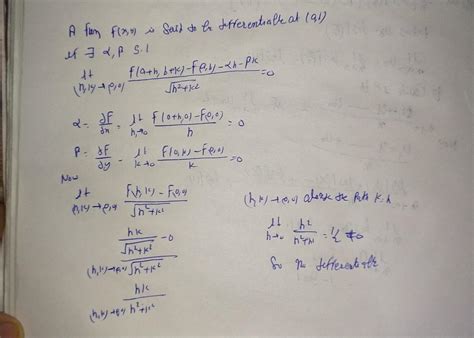 A fun f(x,y) is said to be differentiable at (a,b)
if ∃ α, β s.t
lt (h,k)→(0,0) f(a+h, b+k) - f(a,b) - αh - βk / √h²+k² = 0
α = ∂f/∂x = lt h→0 f(0+h,0) - f(0,0) / h = 0
β = ∂f/∂y = lt k→0 f(0,k) - f(0,0) / k = 0
Now
lt (h,k)→(0,0) f(h,k) - f(0,0) / √h²+k²
lt (h,k)→(0,0) hk / √h²+k² - 0 / √h²+k²
(h,k)→(0,0) hk / h²+k²
(h,k)→(0,0) the path k=h
lt h→0 h² / h²+h² = 1/2 ≠ 0
So no differentiable